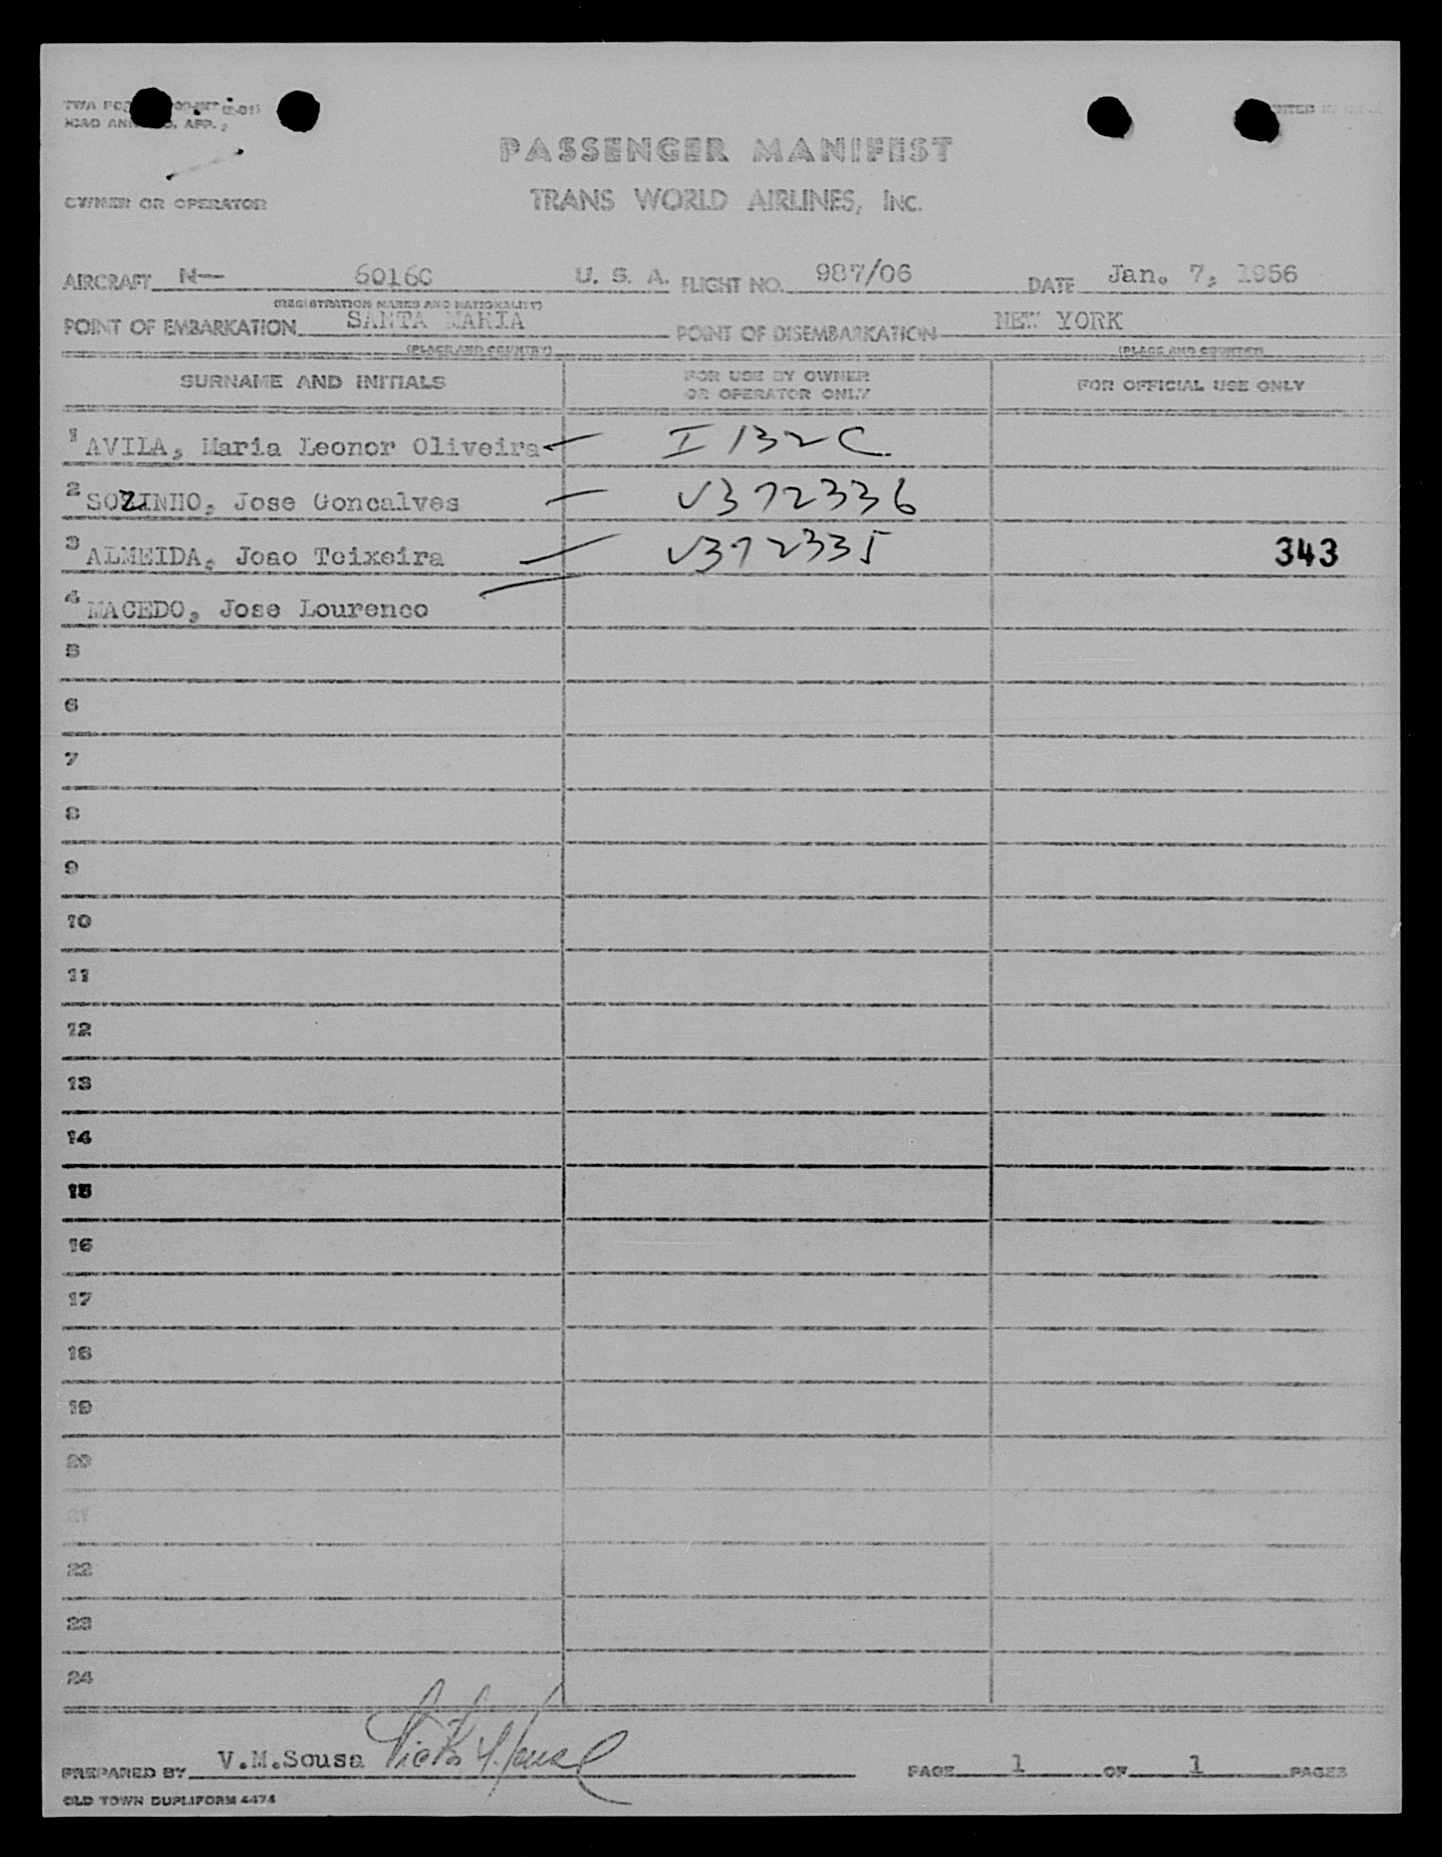 TWA
ICAO
PASSENGER MANIFEST
OWNER OR OPERATOR
TRANS WORLD AIRLINES, INC.
AIRCRAFT N— 6016C U. S. A. FLIGHT NO. 987/06 DATE Jan. 7, 1956
(REGISTRATION MARKS AND NATIONALITY)
POINT OF EMBARKATION SANTA MARIA POINT OF DISEMBARKATION NEW YORK
(PLACE AND COUNTRY) (PLACE AND COUNTRY)
SURNAME AND INITIALS FOR USE BY OWNER OR OPERATOR ONLY FOR OFFICIAL USE ONLY
1 AVILA, Maria Leonor Oliveira — I 132C.
2 SOZINHO, Jose Goncalves — V372336
3 ALMEIDA, Joao Teixeira — V372335 343
4 MACEDO, Jose Lourenco
5
6
7
8
9
10
11
12
13
14
15
16
17
18
19
20
21
22
23
24
PREPARED BY V.M.Sousa PAGE 1 OF 1 PAGES
OLD TOWN DUPLIFORM 4474